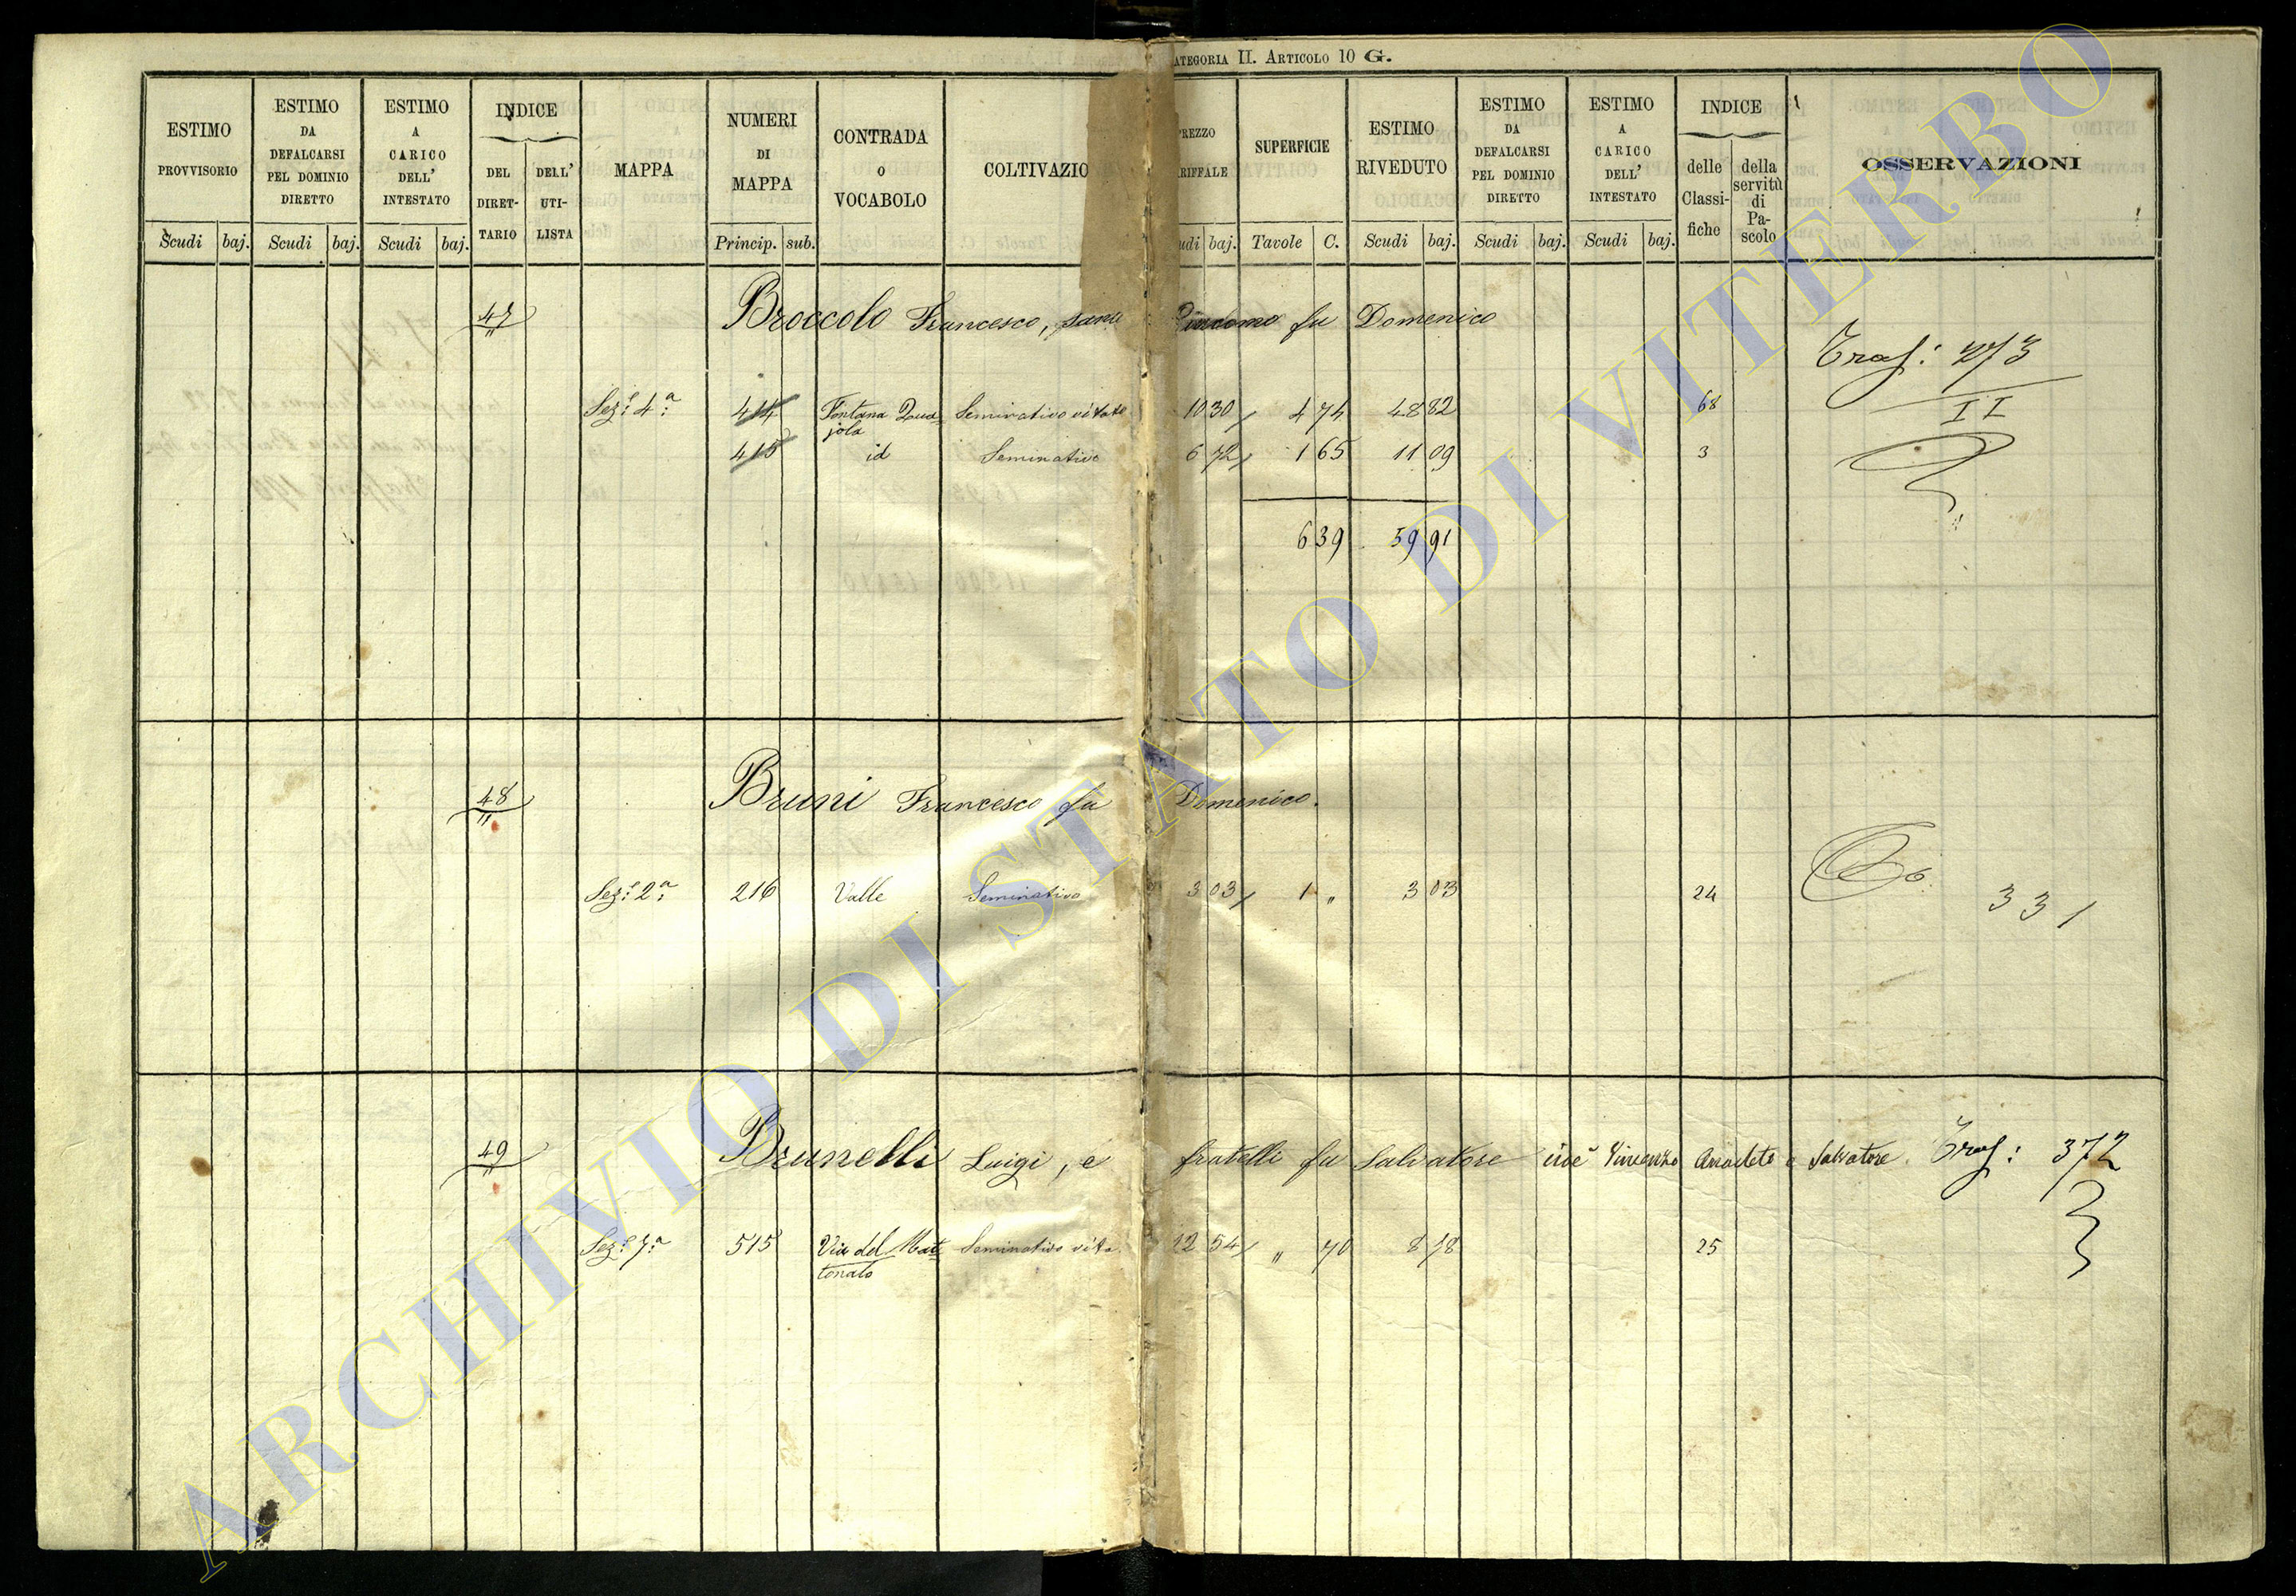 ATEGORIA II. ARTICOLO 10 G.
ESTIMO PROVVISORIO
ESTIMO DA DEFALCARSI PEL DOMINIO DIRETTO
ESTIMO A CARICO DELL' INTESTATO
INDICE
DEL DIRET-TARIO
DELL' UTI-LISTA
MAPPA
NUMERI DI MAPPA
CONTRADA o VOCABOLO
COLTIVAZIO
REZZO RIFFALE
SUPERFICIE
ESTIMO RIVEDUTO
ESTIMO DA DEFALCARSI PEL DOMINIO DIRETTO
ESTIMO A CARICO DELL' INTESTATO
INDICE
delle Classi-fiche
della servitù di Pa-scolo
OSSERVAZIONI
Scudi baj. Scudi baj. Scudi baj. Princip. sub. udi baj. Tavole C. Scudi baj. Scudi baj. Scudi baj.
47 Broccolo Francesco, fu Domenico
Traf: 273
II
Sez.e 4.a 414 Fontana Seminativo vitato 10 30 4 74 48 82 68
jola
415 id Seminativo 6 72 1 65 11 09 3
6 39 59 91
48 Bruni Francesco fu Domenico.
Sez.e 2.a 216 Valle Seminativo 3 03 1 „ 3 03 24 331
49 Brunelli Luigi, e fratelli fu Salvatore cioè Vincenzo Anacleto e Salvatore. Traf: 372
Sez.e 7.a 515 Via del Mat Seminativo vito. 12 54 „ 70 8 78 25
tonato
ARCHIVIO DI STATO DI VITERBO